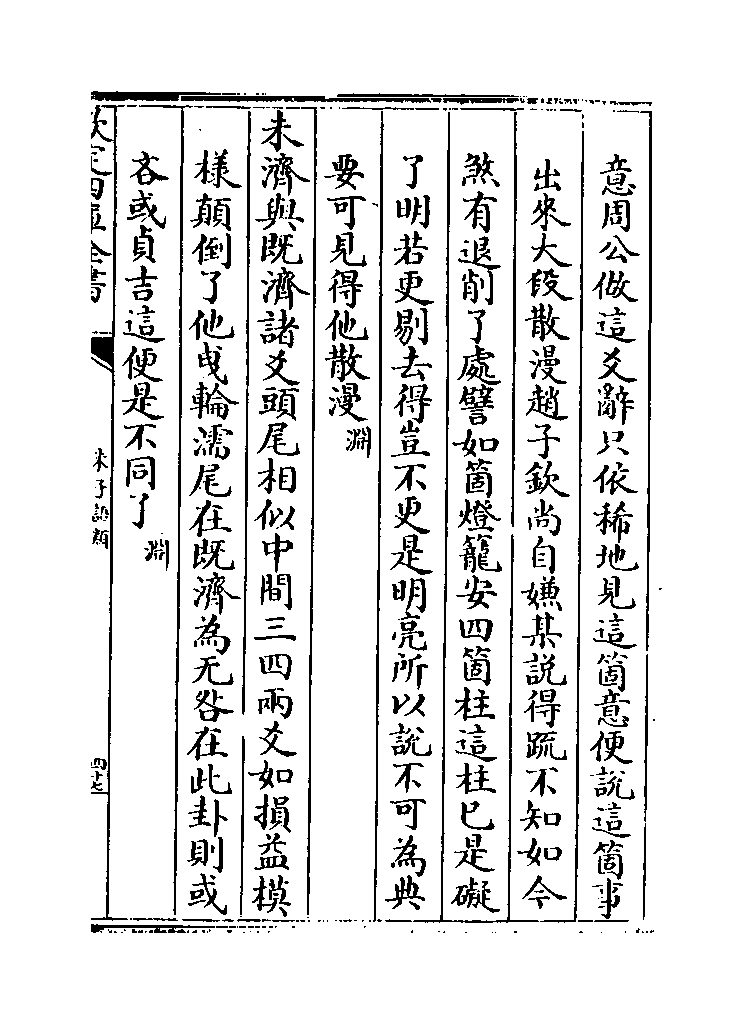 意周公做這爻辭只依稀地見這箇意便說這箇事
出來大段散漫趙子欽尚自嫌某說得䟽不知如今
煞有退削了處譬如箇燈籠安四箇柱這柱已是礙
了明若更剔去得豈不更是明亮所以說不可為典
要可見得他散漫淵
未濟與既濟諸爻頭尾相似中間三四兩爻如損益模
様顛倒了他曳輪濡尾在既濟為无咎在此卦則或
吝或貞吉這便是不同了淵
欽定四庫全書
朱子語類
四十七